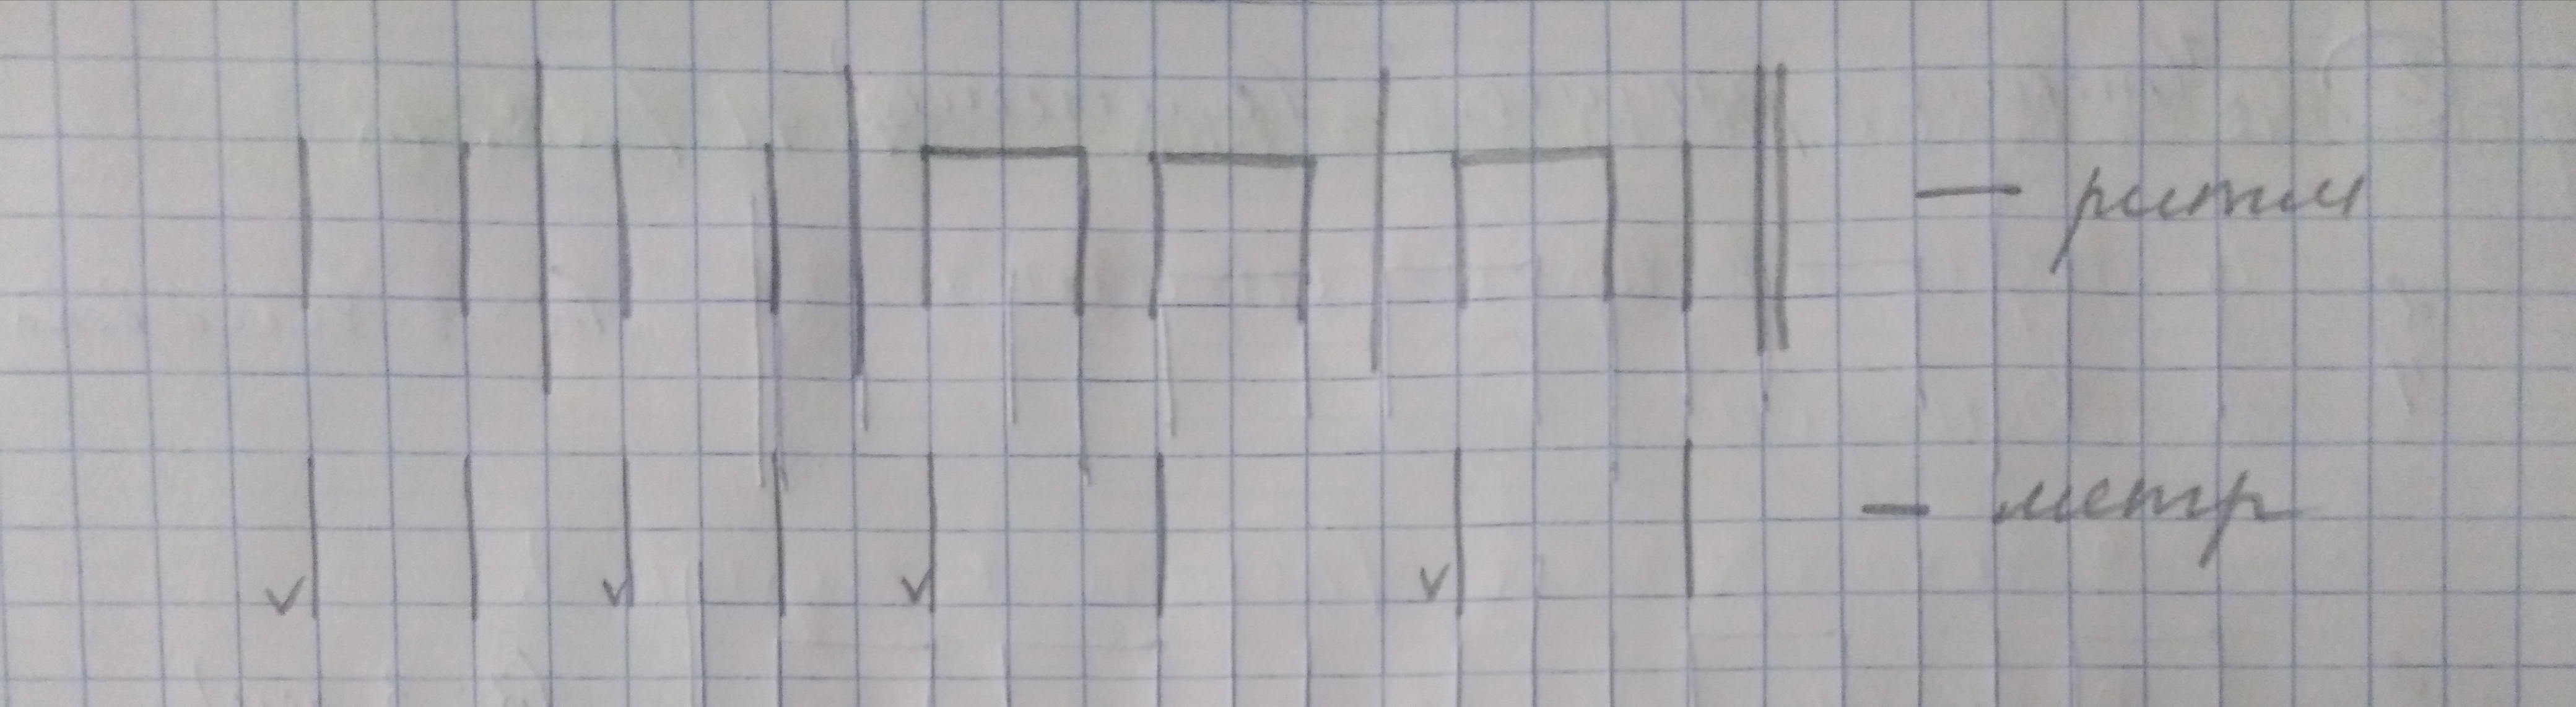 — ритм
— метр